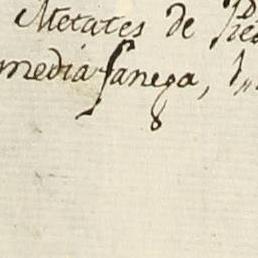 Metates de
media fanega,
8